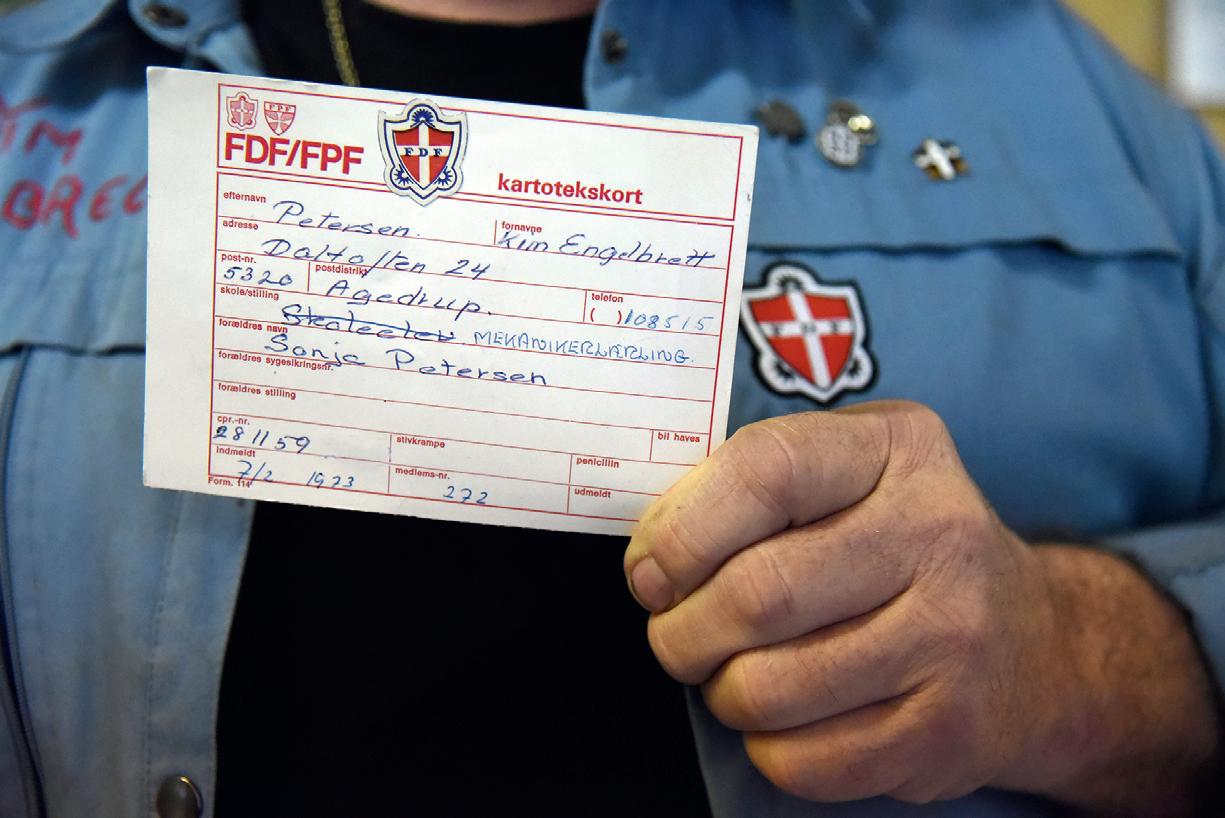 TM
BREG
FPF
FDF/FPF
FDF
kartotekskort
efternavn Petersen. fornavne Kim Engelbrett
adresse Daltoften 24
post-nr. 5320 postdistrikt Agedrup. telefon ( ) 108515
skole/stilling Skoleelev MEKANIKERLÆRLING.
forældres navn Sonja Petersen
forældres sygesikringsnr.
forældres stilling
cpr.-nr. 281159 stivkrampe bil haves
indmeldt 7/2 1973 medlems-nr. 272 penicillin
Form. 114 udmeldt
FDF